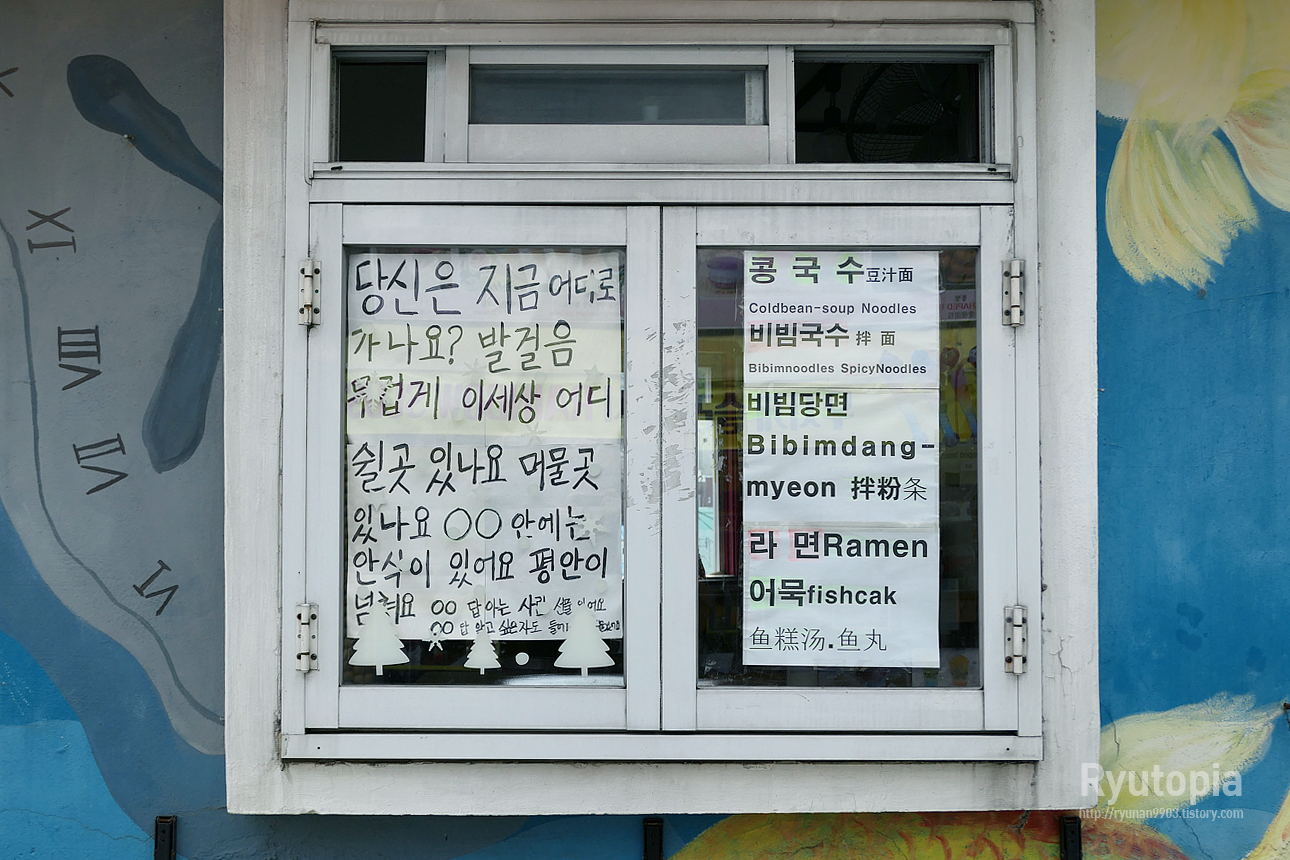 당신은 지금 어디로
가나요? 발걸음
무겁게 이세상 어디
쉴곳 있나요 머물곳
있나요 〇〇 안에는
안식이 있어요 평안이
넘쳐요 〇〇 답 아는 사람 선물 있어요
〇〇 답 알고 싶은자도 들어
콩 국 수豆汁面
Coldbean-soup Noodles
비빔국수 拌 面
Bibimnoodles SpicyNoodles
비빔당면
Bibimdang-
myeon 拌粉条
라 면Ramen
어묵fishcak
鱼糕汤.鱼丸
XI
VIII
VII
VI
Ryutopia
http://ryunan9903.tistory.com